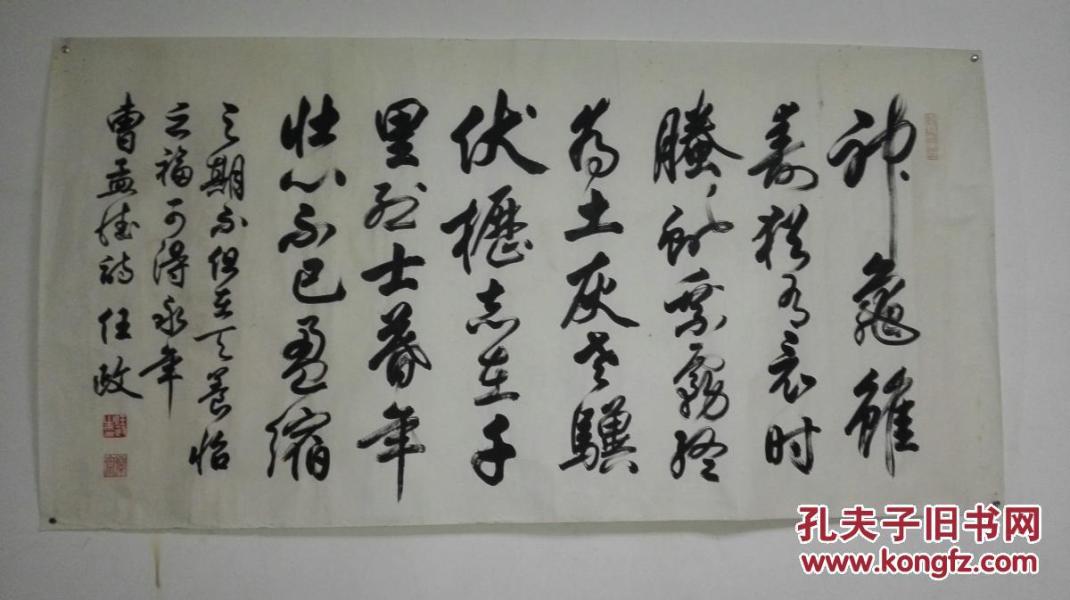 神龜雖
壽猶有竟时
螣蛇乘霧終
为土灰老驥
伏櫪志在千
里烈士暮年
壯心不已盈縮
之期不但在天養怡
之福可得永年
曹孟德詩 任政
孔夫子旧书网
www.kongfz.com